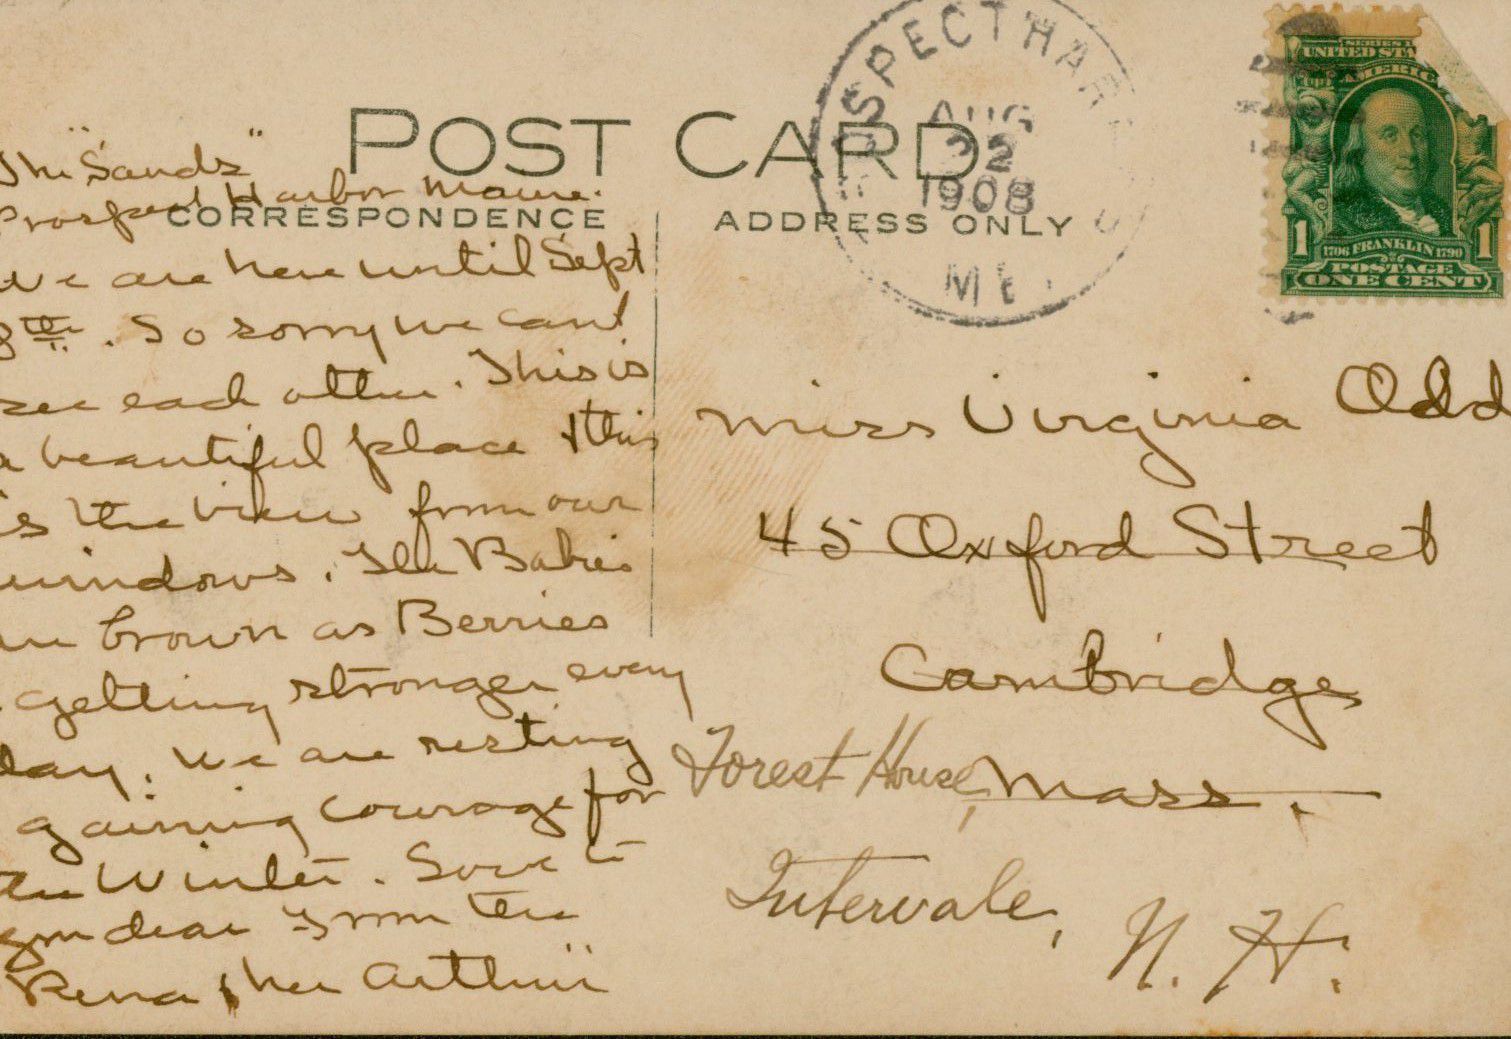 POST CARD
CORRESPONDENCE
ADDRESS ONLY
SPECT HAR
AUG
22
1908
ME.
SERIES 1
UNITED STA
AMERIC
1706 FRANKLIN 1790
1 1
POSTAGE
ONE CENT
The "Sands"
Prospect Harbor Maine.
We are here until Sept
8th. So sorry we cant
see each other. This is
a beautiful place & this
is the view from our
windows. The Babies
are brown as Berries
& getting stronger every
day. We are resting
& gaining courage for
the Winter. Love to
you dear from the
Rena & her Arthur
Miss Virginia Odd
45 Oxford Street
Cambridge
Mass.
Forest House,
Intervale, N. H.